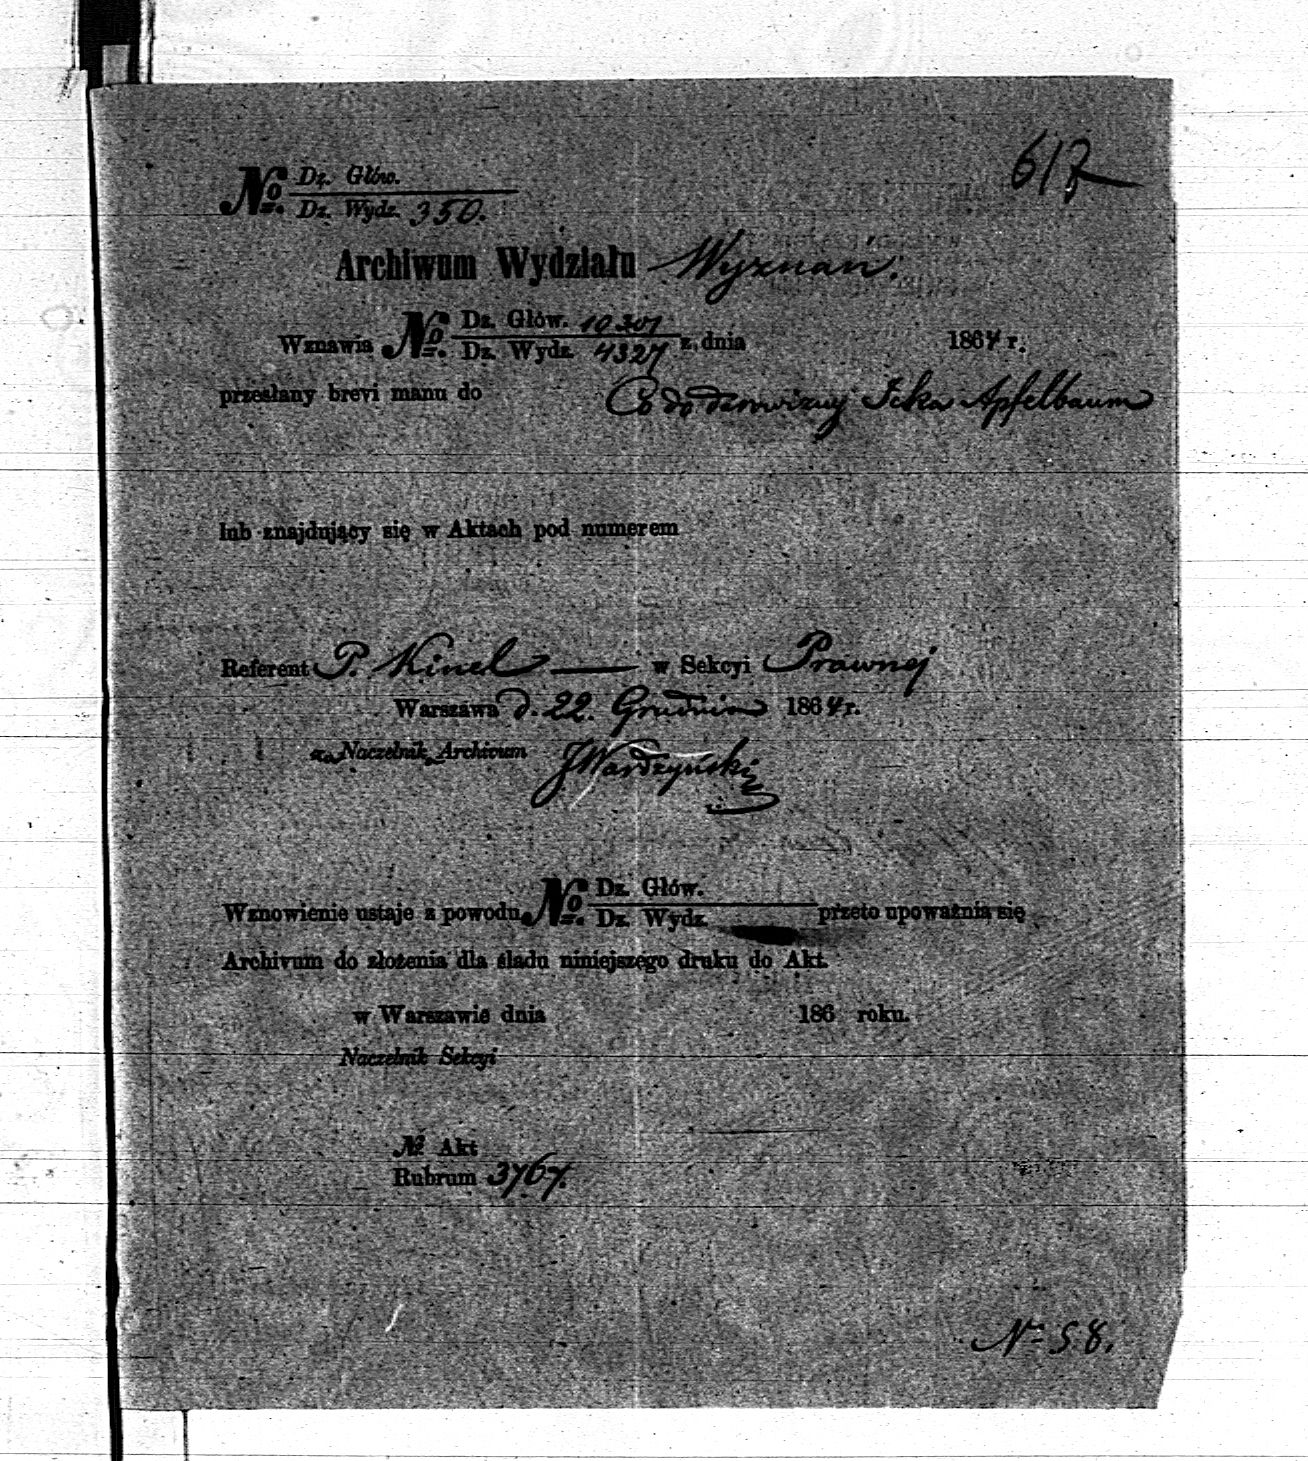 617
№ Dz. Głów.
Dz. Wydz. 350.
Archiwum Wydziału Wyznań.
Wznawia № Dz. Głów. 10301
Dz. Wydz. 4327 z dnia 1864 r.
przesłany brevi manu do Co do darowizny Icka Apfelbaum
lub znajdujący się w Aktach pod numerem
Referent P. Kinel w Sekcyi Prawnej
Warszawa d. 22. Grudnia 1864 r.
za Naczelnik Archivum JWardzyński
Wznowienie ustaje z powodu № Dz. Głów.
Dz. Wydz. przeto upoważnia się
Archivum do złożenia dla śladu niniejszego druku do Akt.
w Warszawie dnia 186 roku.
Naczelnik Sekcyi
№ Akt
Rubrum 3767.
№ 58.